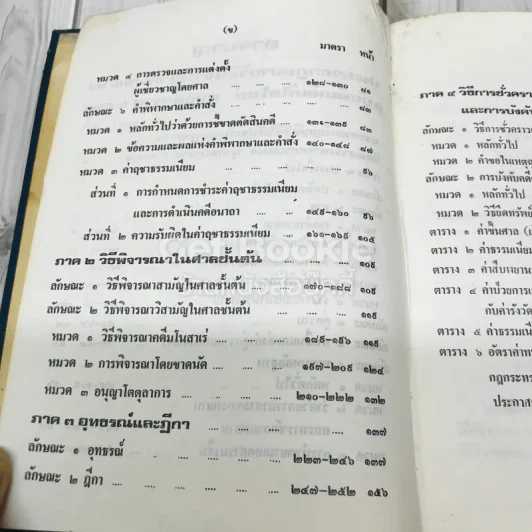 (ข)
มาตรา หน้า
หมวด ๔ การตรวจและการแต่งตั้ง
ผู้เชี่ยวชาญโดยศาล ... ... ๑๒๘-๑๓๐ ๘๑
ลักษณะ ๖ คำพิพากษาและคำสั่ง
หมวด ๑ หลักทั่วไปว่าด้วยการชี้ขาดตัดสินคดี ... ๑๓๑-๑๓๙
หมวด ๒ ข้อความและผลแห่งคำพิพากษาและคำสั่ง ๑๔๐-๑๔๘ ๘๗
หมวด ๓ ค่าฤชาธรรมเนียม
ส่วนที่ ๑ การกำหนดการชำระค่าฤชาธรรมเนียม
และการดำเนินคดีอนาถา ... ... ๑๔๙-๑๖๐ ๙๖
ส่วนที่ ๒ ความรับผิดในค่าฤชาธรรมเนียม ... ๑๖๑-๑๖๙ ๑๐๕
ภาค ๒ วิธีพิจารณาในศาลชั้นต้น ... ... ๑๐๙
ลักษณะ ๑ วิธีพิจารณาสามัญในศาลชั้นต้น ... ๑๗๐-๑๘๘ ๑๐๙
ลักษณะ ๒ วิธีพิจารณาวิสามัญในศาลชั้นต้น ... ๑๑๕
หมวด ๑ วิธีพิจารณาคดีมโนสาเร่ ... ... ๑๘๙-๑๙๖ ๑๑๕
หมวด ๒ การพิจารณาโดยขาดนัด ... ... ๑๙๗-๒๐๙ ๑๒๔
หมวด ๓ อนุญาโตตุลาการ ... ... ๒๑๐-๒๒๒ ๑๓๒
ภาค ๓ อุทธรณ์และฎีกา ... ... ๑๓๗
ลักษณะ ๑ อุทธรณ์ ... ... ๒๒๓-๒๔๖ ๑๓๗
ลักษณะ ๒ ฎีกา ... ... ๒๔๗-๒๕๒ ๑๕๖
ภาค ๔ วิธีการชั่วครา
และการบังคับ
ลักษณะ ๑ วิธีการชั่วคราว
หมวด ๑ หลักทั่วไป
หมวด ๒ คำขอในเหตุฉุ
ลักษณะ ๒ การบังคับคดี
หมวด ๑ หลักทั่วไป
หมวด ๒ วิธียึดทรัพย์
ตาราง ๑ ค่าขึ้นศาล
ตาราง ๒ ค่าธรรมเนีย
ตาราง ๓ ค่าสืบพยาน
ตาราง ๔ ค่าป่วยการ
กับค่ารังวัด
ตาราง ๕ ค่าธรรมเนี
ตาราง ๖ อัตราค่าท
กฎกระทร
ประกาศ
Get Bookie